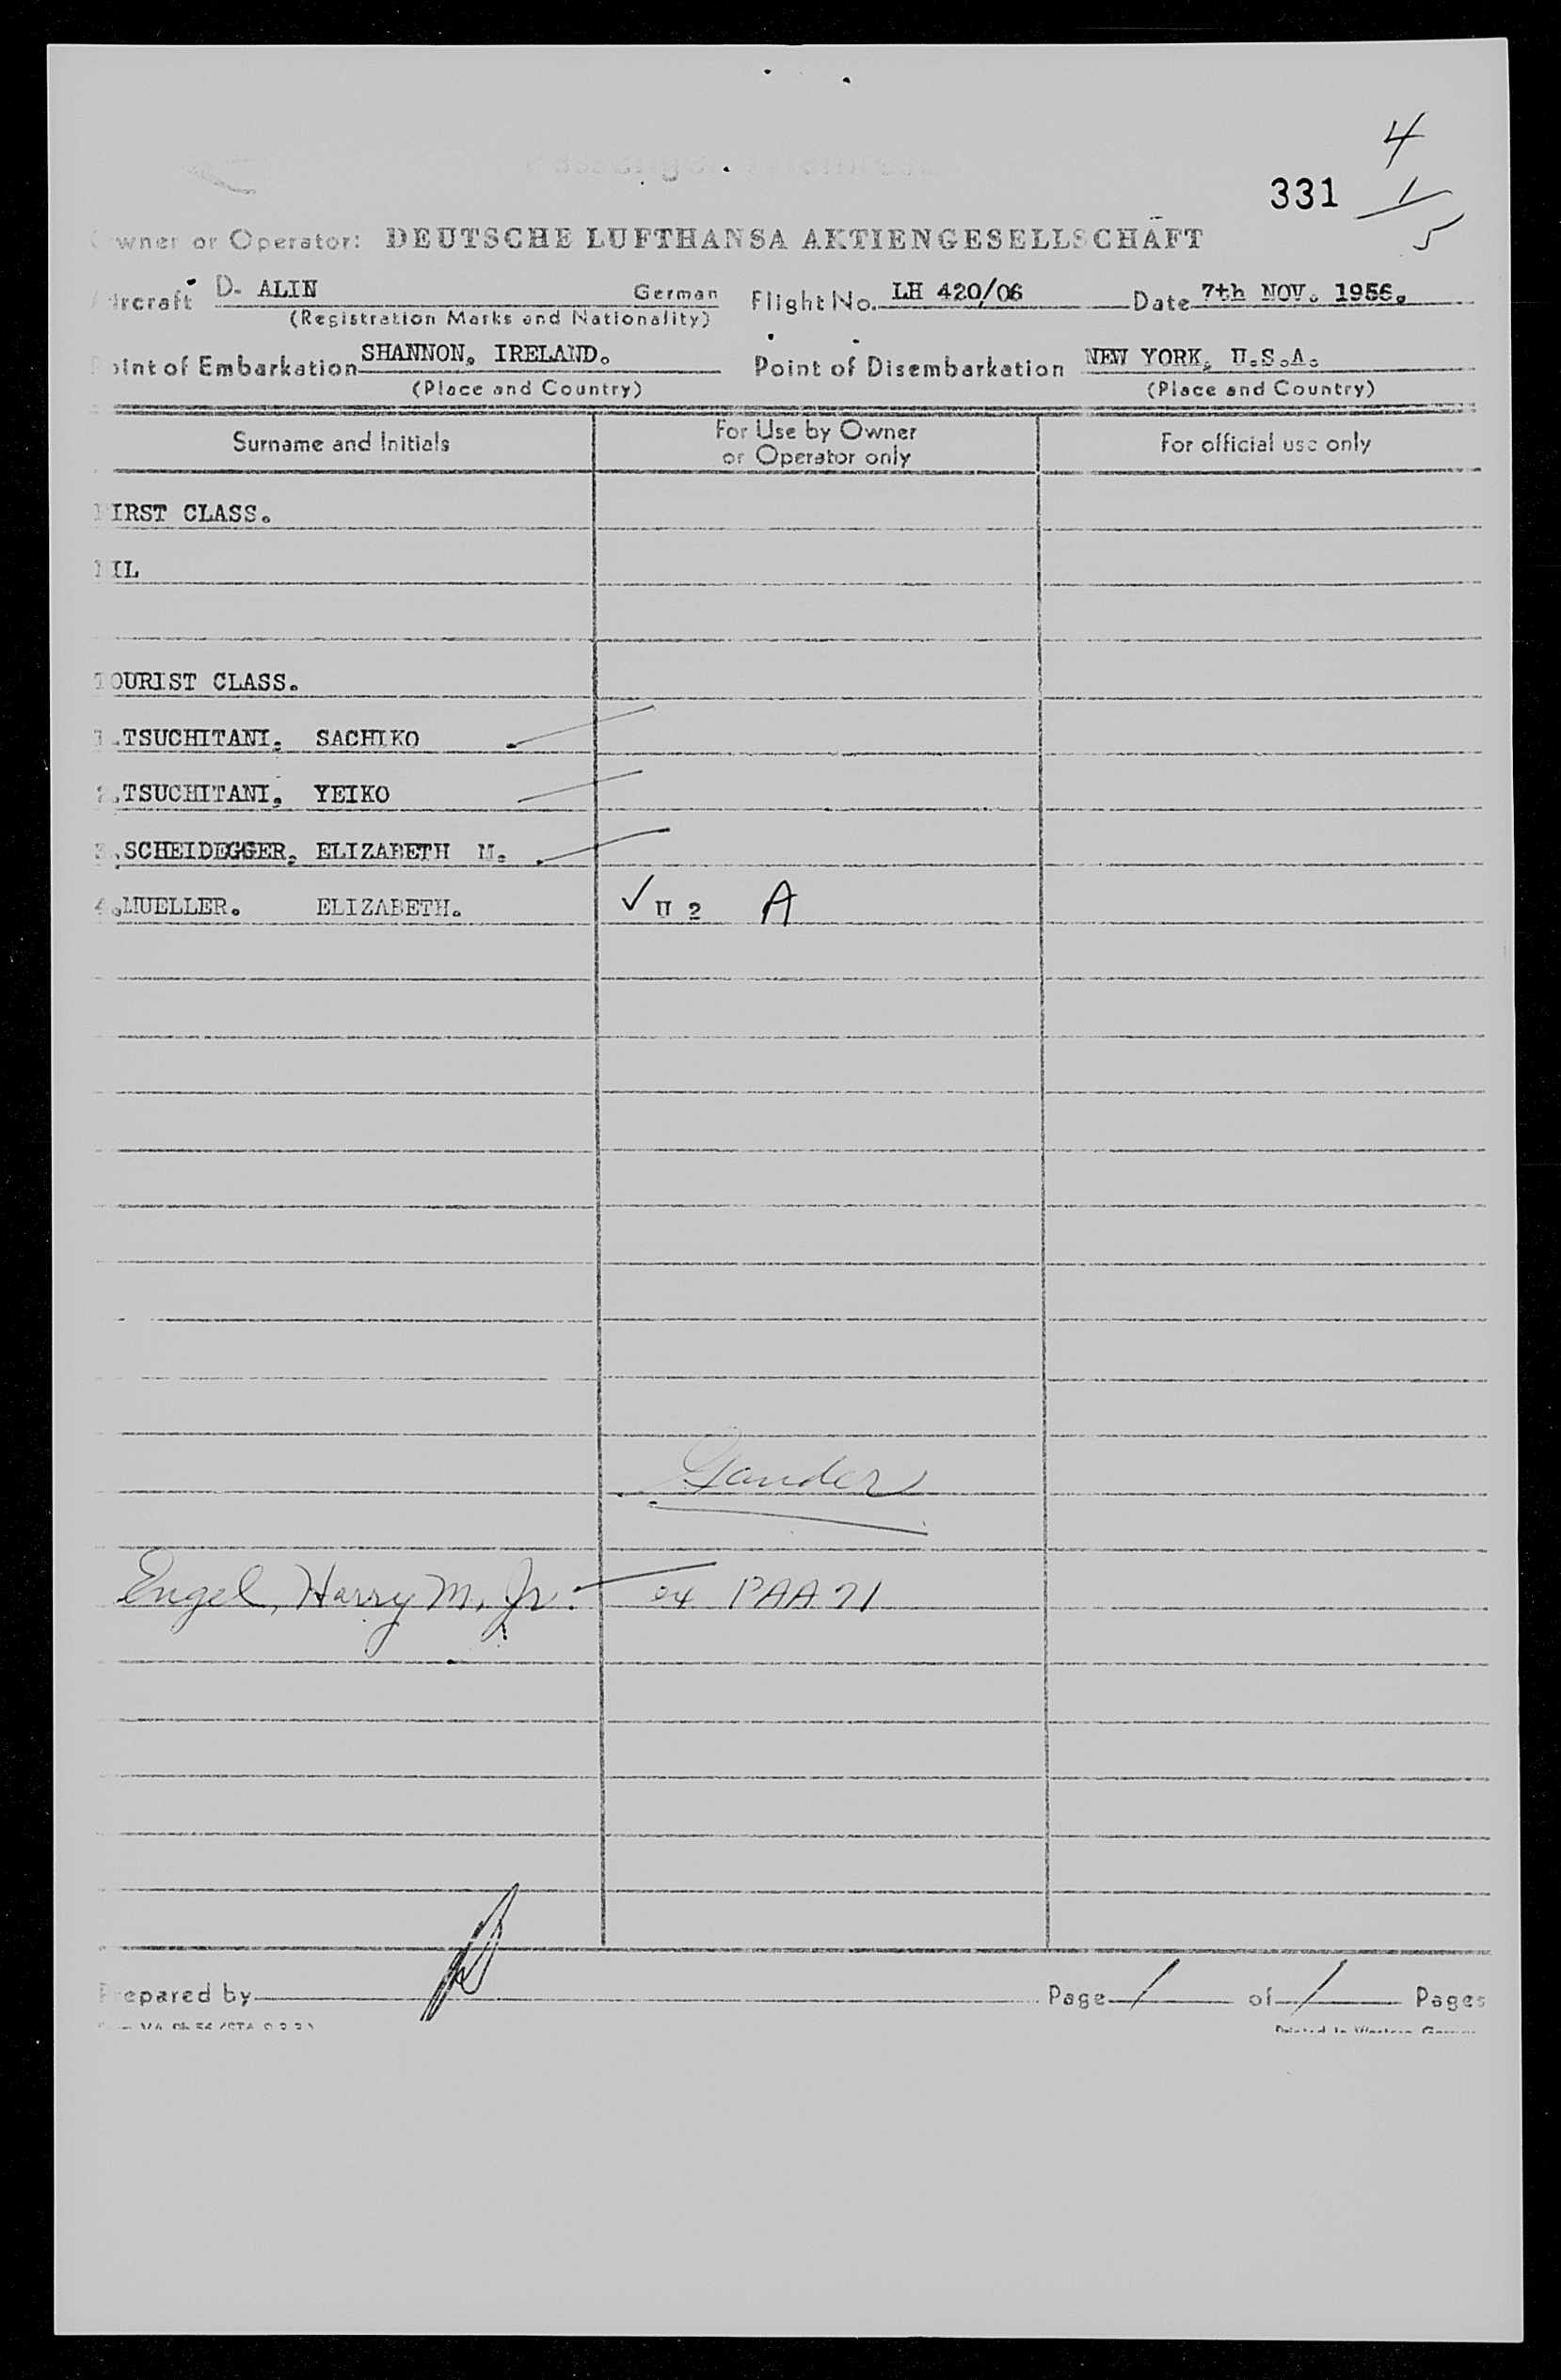 4
331 1
5
Owner or Operator: DEUTSCHE LUFTHANSA AKTIENGESELLSCHAFT
Aircraft D- ALIN German Flight No. LH 420/06 Date 7th NOV. 1956.
(Registration Marks and Nationality)
Point of Embarkation SHANNON, IRELAND. Point of Disembarkation NEW YORK, U.S.A.
(Place and Country) (Place and Country)
Surname and Initials For Use by Owner or Operator only For official use only
FIRST CLASS.
NIL
TOURIST CLASS.
1.TSUCHITANI, SACHIKO
2.TSUCHITANI, YEIKO
3.SCHEIDEGGER, ELIZABETH M.
4.MUELLER. ELIZABETH. ✓ U 2 A
Gander
Engel, Harry M, Jr. ex PAA 71
Prepared by Page 1 of 1 Pages